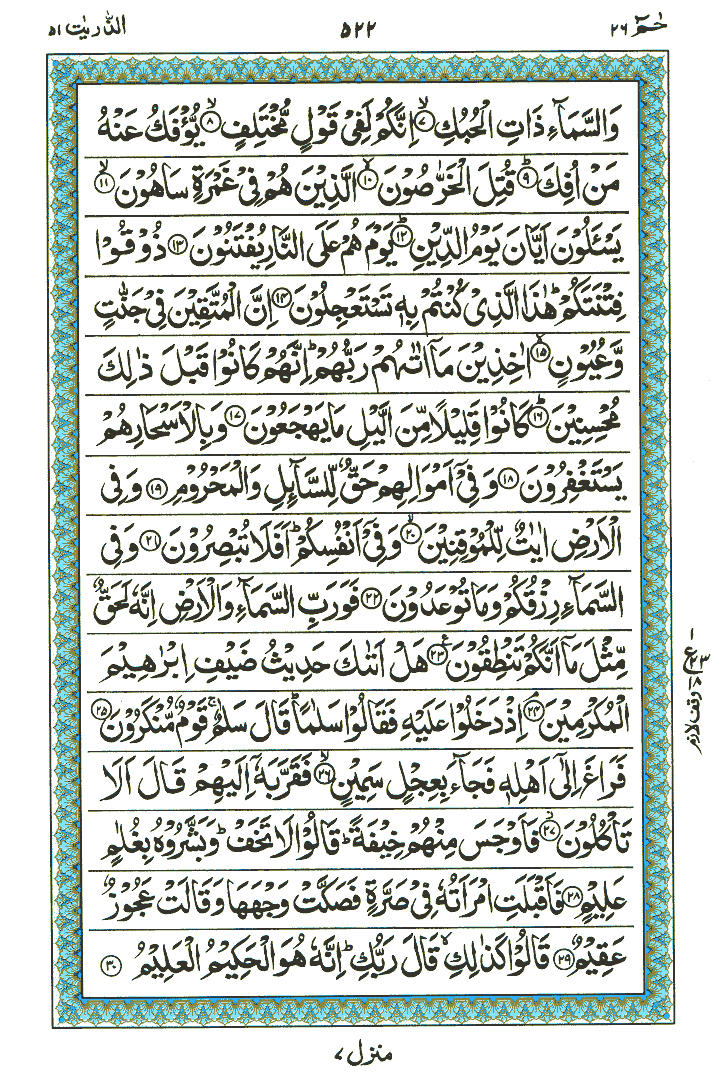 حٰمٓ ۲۶ ۵۲۲ الذّٰریٰت ۵۱
وَالسَّمَآءِ ذَاتِ الْحُبُكِ ۙ﴿۷﴾ اِنَّكُمْ لَفِیْ قَوْلٍ مُّخْتَلِفٍ ۙ﴿۸﴾ یُّؤْفَكُ عَنْهُ
مَنْ اُفِكَ ؕ﴿۹﴾ قُتِلَ الْخَرّٰصُوْنَ ۙ﴿۱۰﴾ الَّذِیْنَ هُمْ فِیْ غَمْرَةٍ سَاهُوْنَ ۙ﴿۱۱﴾
یَسْـَٔلُوْنَ اَیَّانَ یَوْمُ الدِّیْنِ ؕ﴿۱۲﴾ یَوْمَ هُمْ عَلَی النَّارِ یُفْتَنُوْنَ ﴿۱۳﴾ ذُوْقُوْا
فِتْنَتَكُمْ ؕ هٰذَا الَّذِیْ كُنْتُمْ بِهٖ تَسْتَعْجِلُوْنَ ﴿۱۴﴾ اِنَّ الْمُتَّقِیْنَ فِیْ جَنّٰتٍ
وَّعُیُوْنٍ ۙ﴿۱۵﴾ اٰخِذِیْنَ مَاۤ اٰتٰىهُمْ رَبُّهُمْ ؕ اِنَّهُمْ كَانُوْا قَبْلَ ذٰلِكَ
مُحْسِنِیْنَ ؕ﴿۱۶﴾ كَانُوْا قَلِیْلًا مِّنَ الَّیْلِ مَا یَهْجَعُوْنَ ﴿۱۷﴾ وَبِالْاَسْحَارِ هُمْ
یَسْتَغْفِرُوْنَ ﴿۱۸﴾ وَفِیْۤ اَمْوَالِهِمْ حَقٌّ لِّلسَّآىِٕلِ وَالْمَحْرُوْمِ ﴿۱۹﴾ وَفِی
الْاَرْضِ اٰیٰتٌ لِّلْمُوْقِنِیْنَ ۙ﴿۲۰﴾ وَفِیْۤ اَنْفُسِكُمْ ؕ اَفَلَا تُبْصِرُوْنَ ﴿۲۱﴾ وَفِی
السَّمَآءِ رِزْقُكُمْ وَمَا تُوْعَدُوْنَ ﴿۲۲﴾ فَوَرَبِّ السَّمَآءِ وَالْاَرْضِ اِنَّهٗ لَحَقٌّ
مِّثْلَ مَاۤ اَنَّكُمْ تَنْطِقُوْنَ ﴿۲۳﴾ع هَلْ اَتٰىكَ حَدِیْثُ ضَیْفِ اِبْرٰهِیْمَ
الْمُكْرَمِیْنَ ۘ﴿۲۴﴾ اِذْ دَخَلُوْا عَلَیْهِ فَقَالُوْا سَلٰمًا ؕ قَالَ سَلٰمٌ ۚ قَوْمٌ مُّنْكَرُوْنَ ﴿۲۵﴾
فَرَاغَ اِلٰۤی اَهْلِهٖ فَجَآءَ بِعِجْلٍ سَمِیْنٍ ۙ﴿۲۶﴾ فَقَرَّبَهٗۤ اِلَیْهِمْ قَالَ اَلَا
تَاْكُلُوْنَ ؗ﴿۲۷﴾ فَاَوْجَسَ مِنْهُمْ خِیْفَةً ؕ قَالُوْا لَا تَخَفْ ؕ وَبَشَّرُوْهُ بِغُلٰمٍ
عَلِیْمٍ ﴿۲۸﴾ فَاَقْبَلَتِ امْرَاَتُهٗ فِیْ صَرَّةٍ فَصَكَّتْ وَجْهَهَا وَقَالَتْ عَجُوْزٌ
عَقِیْمٌ ﴿۲۹﴾ قَالُوْا كَذٰلِكِ ۙ قَالَ رَبُّكِ ؕ اِنَّهٗ هُوَ الْحَكِیْمُ الْعَلِیْمُ ﴿۳۰﴾
۱
ع ۲۳
۱۸
وقف لازم
منزل ۷